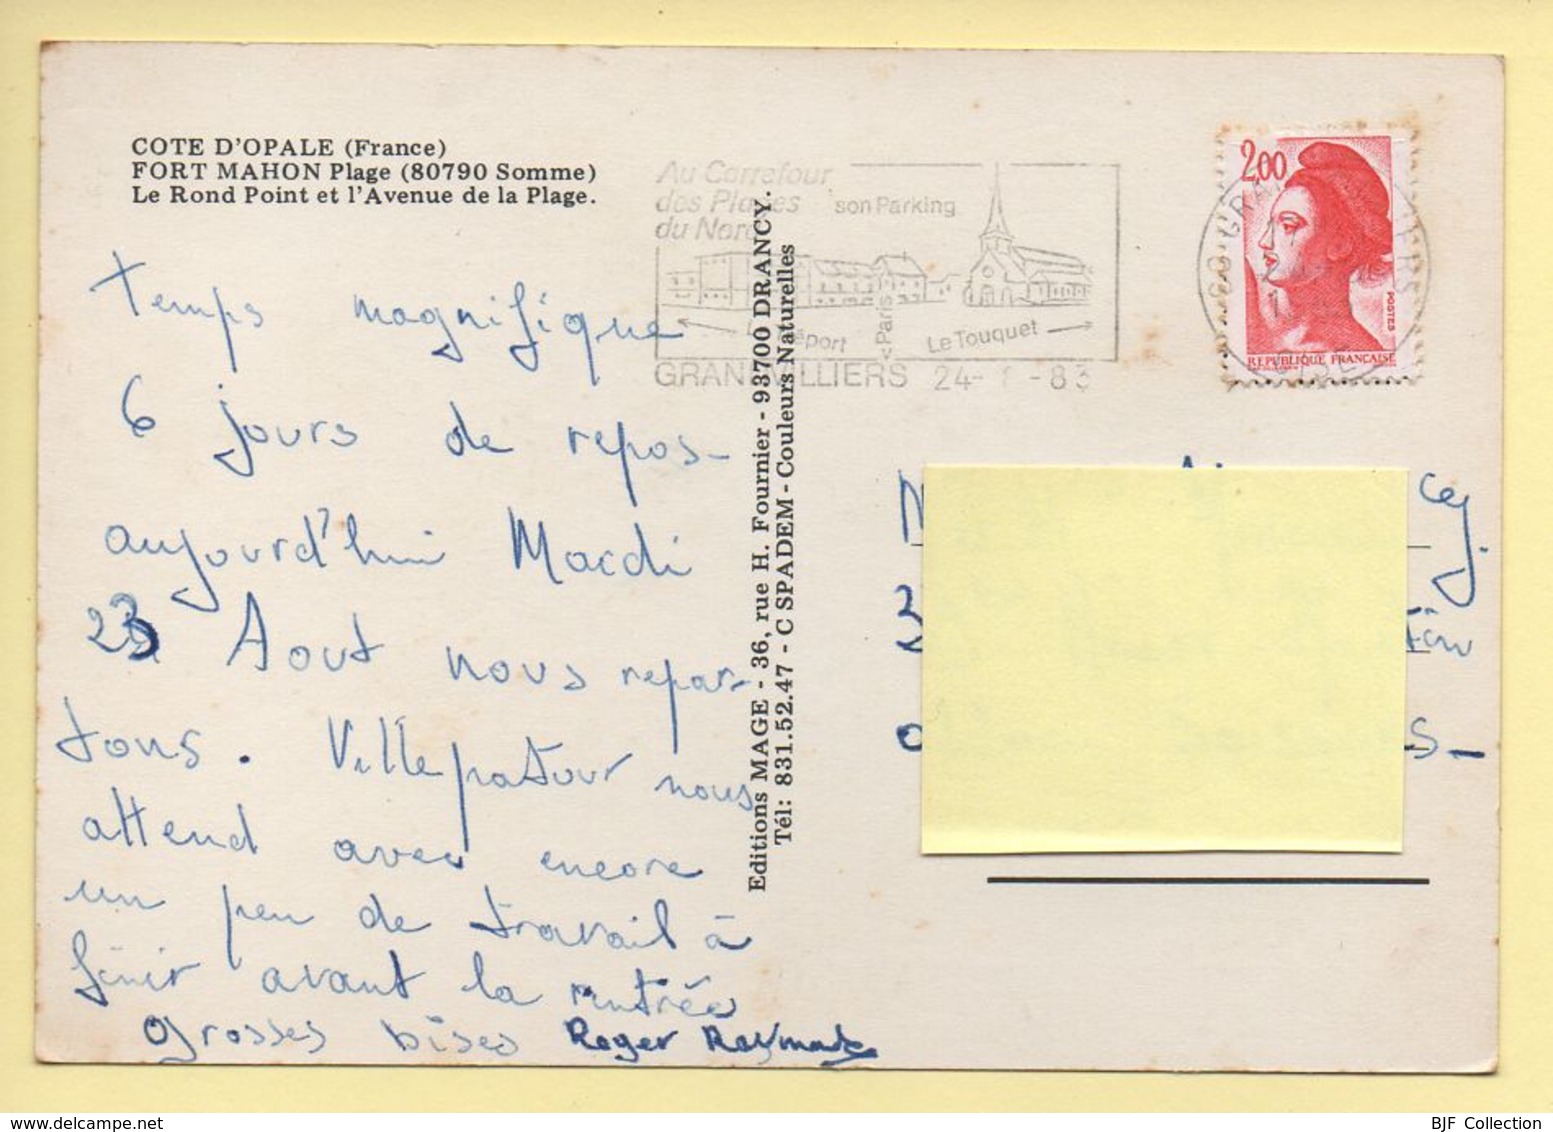 COTE D'OPALE (France)
FORT MAHON Plage (80790 Somme)
Le Rond Point et l'Avenue de la Plage.
Au Carrefour
des Plages
du Nord
son Parking
Le Tréport
< Paris
Le Touquet
GRANDVILLIERS 24- -83
2,00
POSTES
REPUBLIQUE FRANÇAISE
OISE
temps magnifique
6 jours de repos_
aujourd'hui Mardi
23 Aout nous repar-
tons. Villepatour nous
attend avec encore
un peu de travail à
finir avant la rentrée
grosses bises Roger Raymonde
Editions MAGE - 36, rue H. Fournier - 93700 DRANCY.
Tél: 831.52.47 - C SPADEM - Couleurs Naturelles
BJF Collection